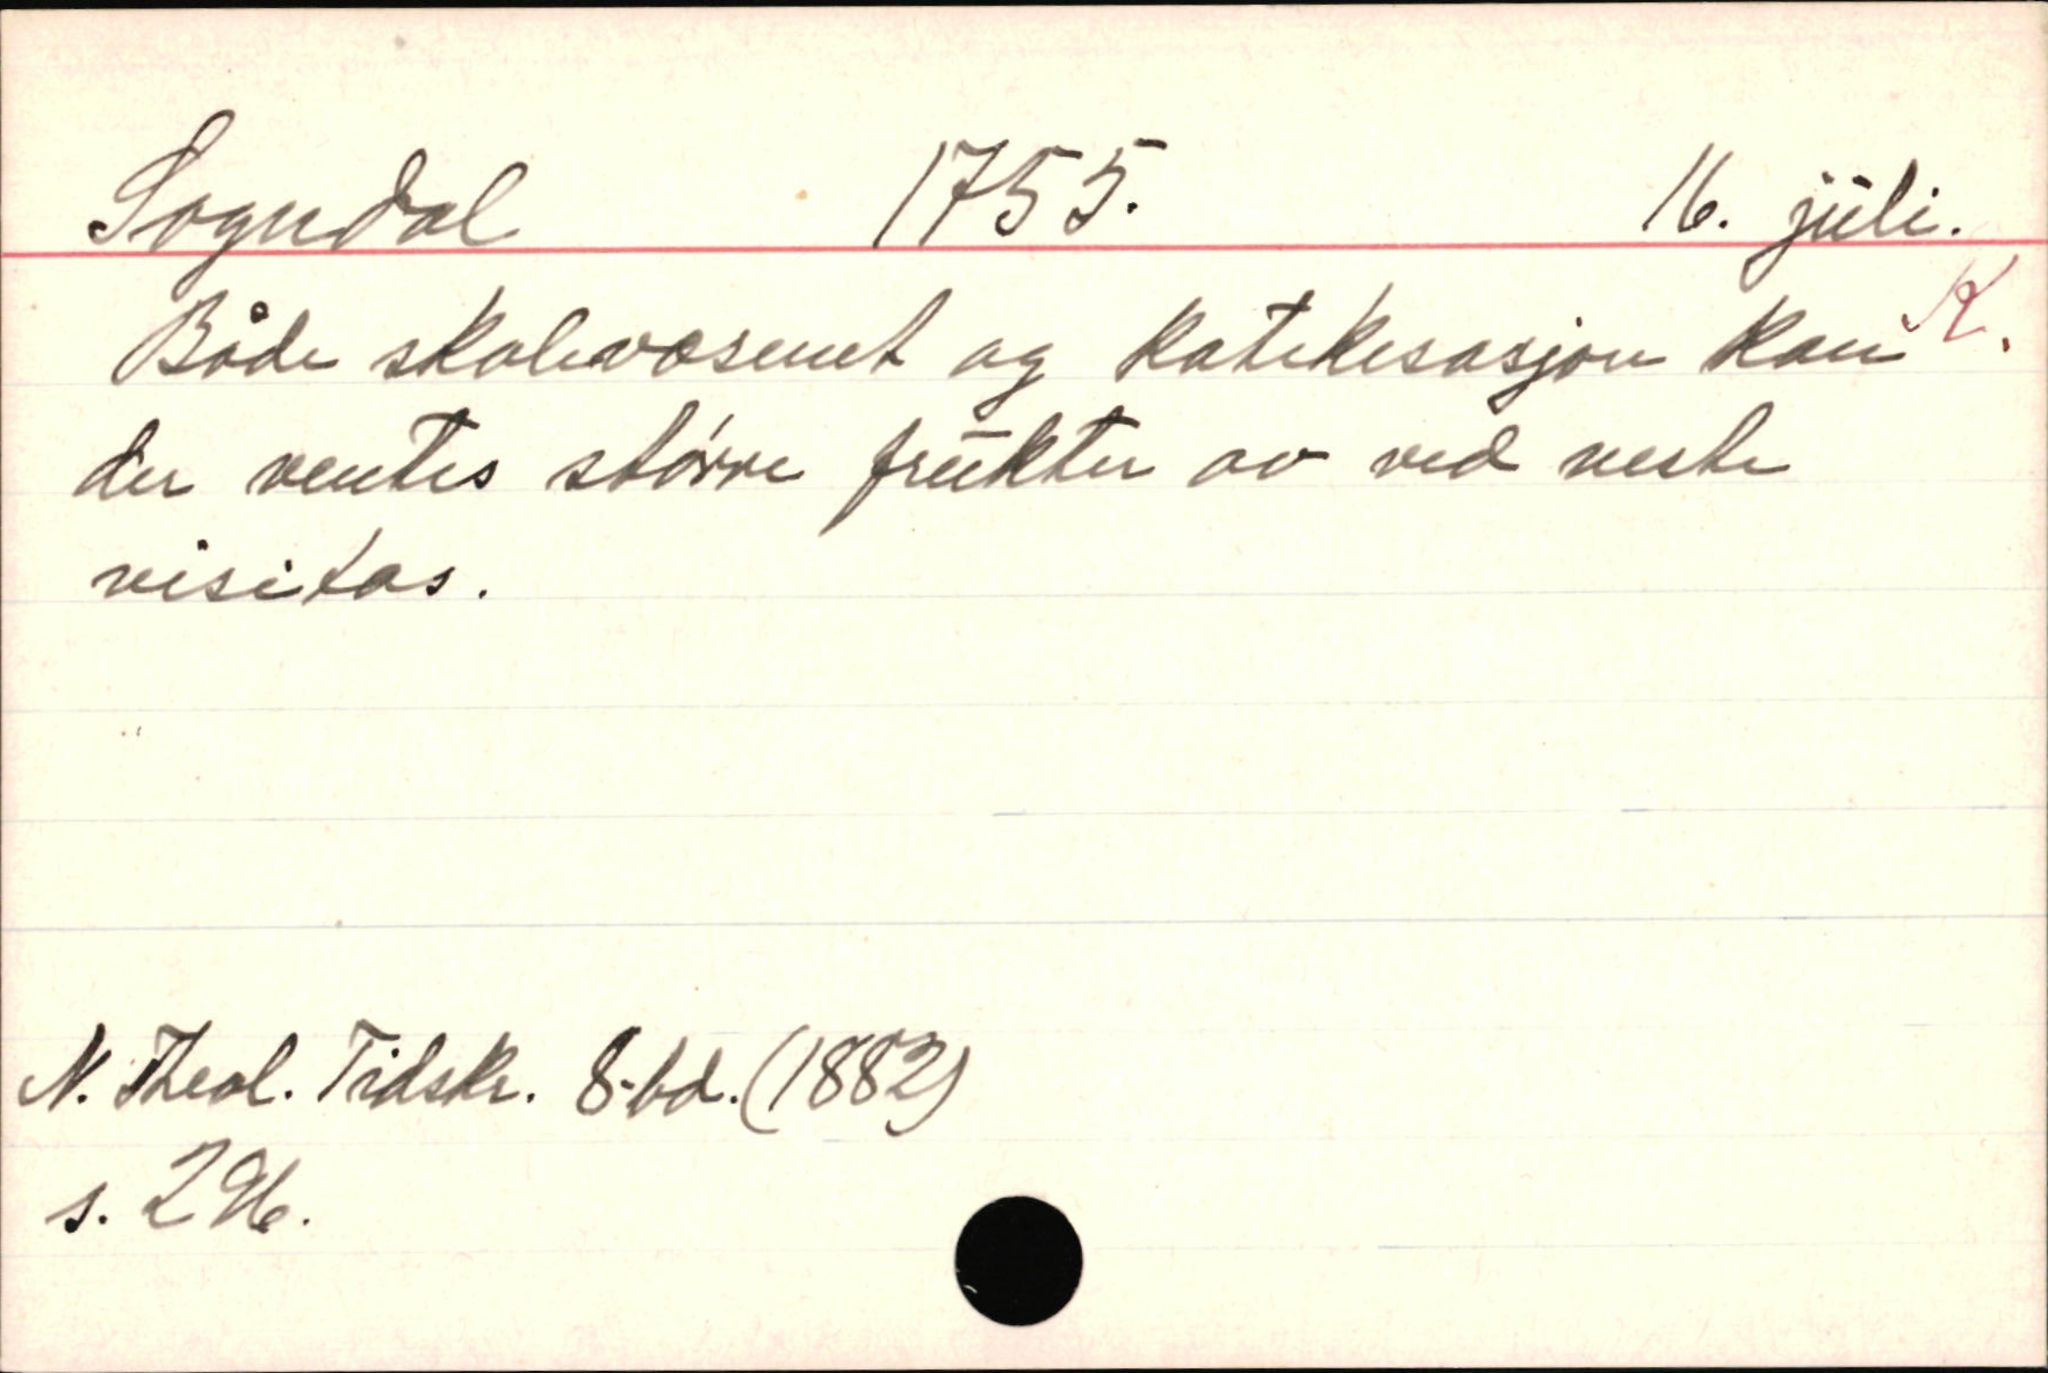 Sogndal 1755. 16. juli.
K.
Både skolevæsenet og katekesasjon kan
der ventes større frukter av ved neste
visitas.
N. Theol. Tidskr. 8-bd. (1882)
s. 296.